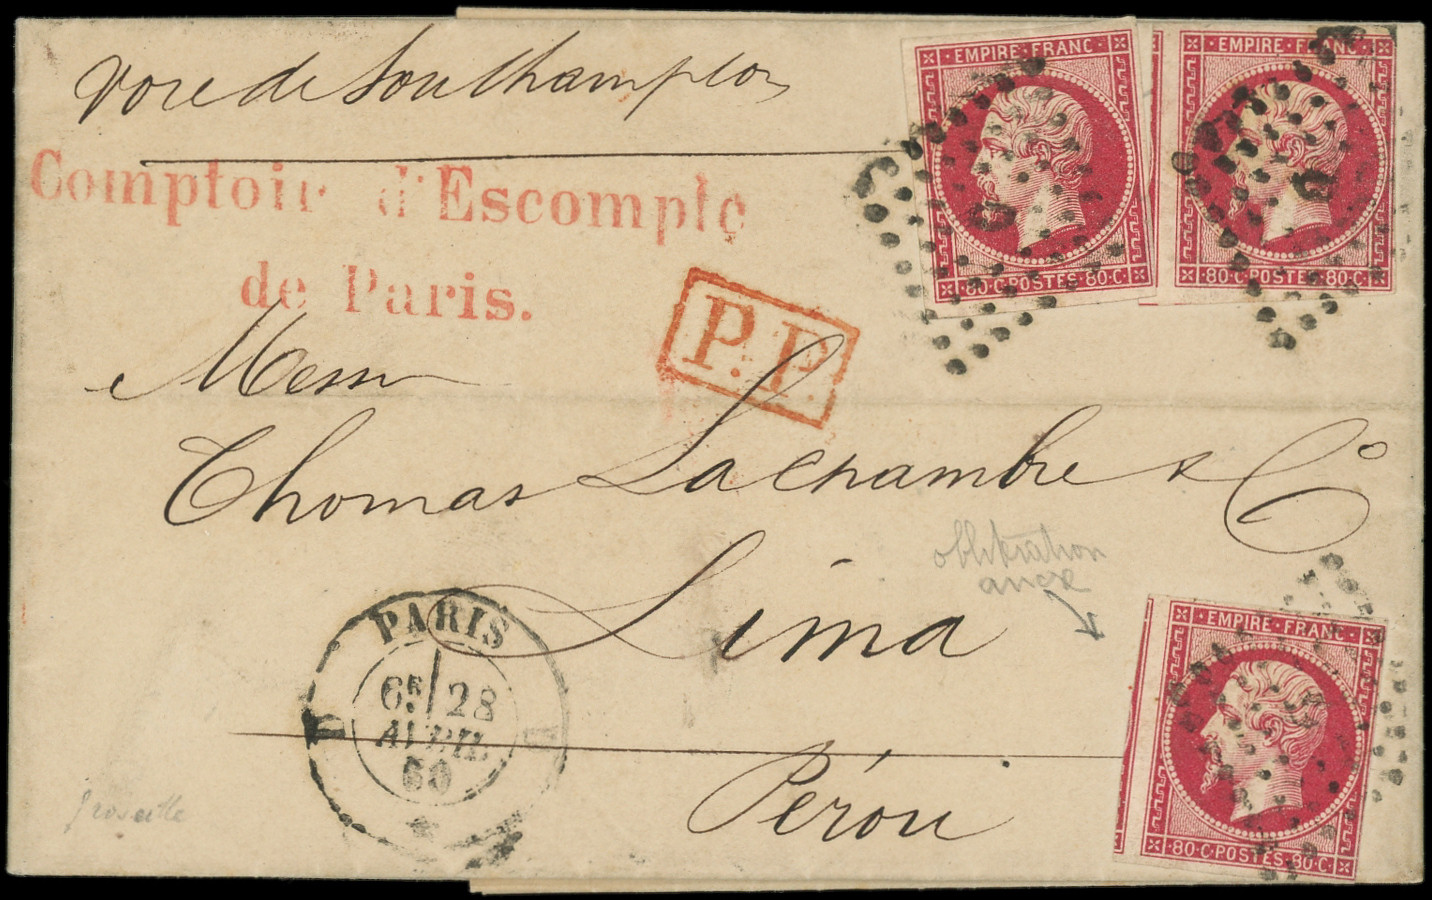 voie de Southampton
EMPIRE·FRANC
80·C·POSTES·80·C
EMPIRE·FRANC
80·C·POSTES·80·C
Comptoir d'Escompte
de Paris.
P.P.
Messrs
Thomas Lachambre & Co
Lima
Pérou
oblitération
PARIS
6E 28
AVRIL
60
D
EMPIRE·FRANC
80·C·POSTES·80·C
groseille